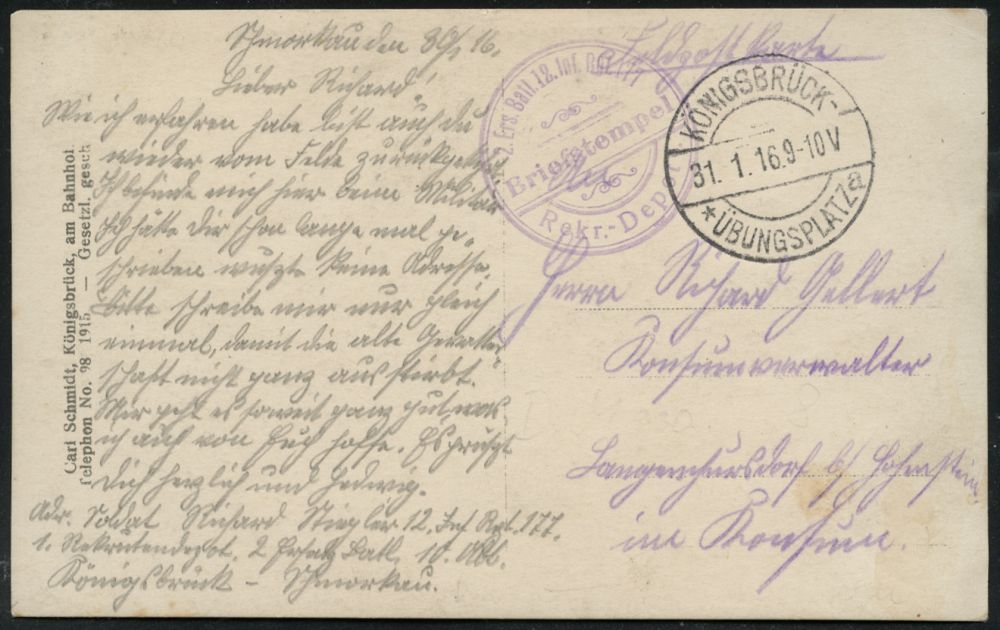 Schmorkau den 30/1 16.
Lieber Richard
Wie ich erfahren habe bist auch du
wieder vom Felde zurückgekehrt
Ich befinde mich hier beim Militär
Ich hätte Dir schon lange mal ge-
schrieben wuszte keine Adresse.
Bitte schreibe mir nur gleich
einmal, damit die alte Gevatter-
schaft nicht ganz ausstirbt.
Mir geht es soweit ganz gut, was
ich auch von Euch hoffe. Es grüszt
Dich herzlich und Hedwig.
Adr. Soldat Richard Stiegler 12. Inf. Rgt. 177.
1. Rekrutendepot, 2 Ersatz Batl. 10. Abt.
Königsbrück – Schmorkau.
Carl Schmidt, Königsbrück, am Bahnhof
Telephon No. 98 1915 — Gesetzl. gesch
Feldpost Karte
2. Ers. Batl. 12. Inf. Rgt. 177
Briefstempel
Rekr.-Depot
KÖNIGSBRÜCK-
31. 1. 16. 9-10 V
* ÜBUNGSPLATZ a
Herrn Richard Gellert
Konsumverwalter
Langenchursdorf b/ Hohenstein
im Konsum.